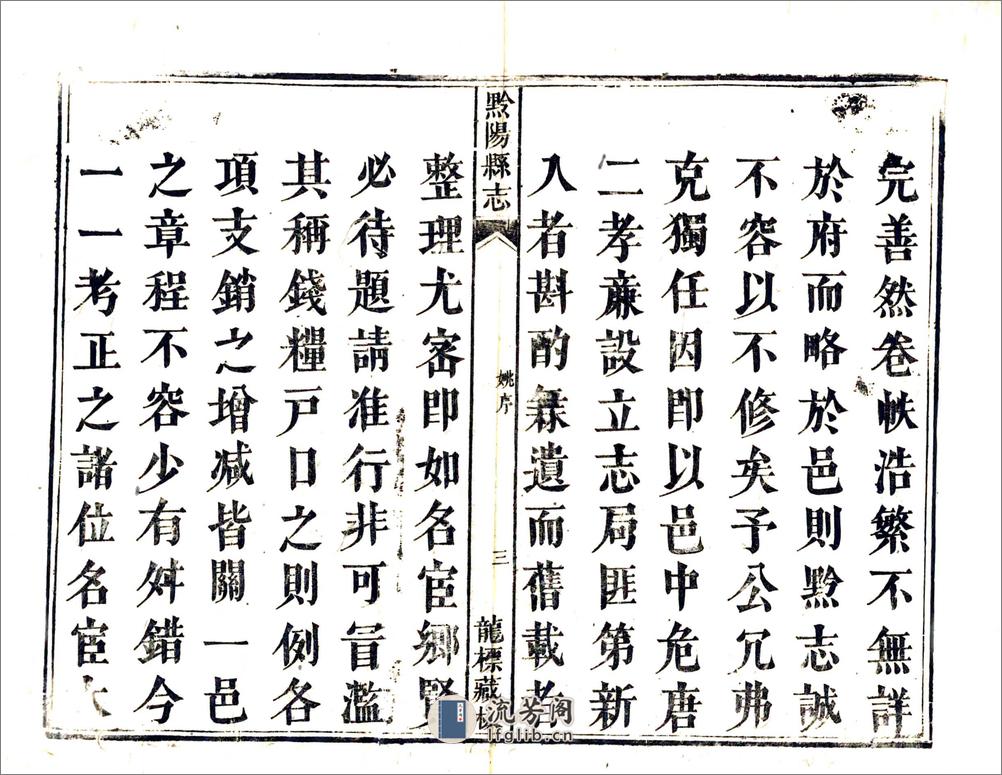 完善然卷帙浩繁不無詳
於府而略於邑則黔志誠
不容以不修矣予公冗弗
克獨任因即以邑中危唐
二孝亷設立志局匪第新
入者斟酌無遺而舊載者
黔陽縣志
姚序
三
龍標藏板
整理尤密即如名宦鄉賢
必待題請准行非可冐濫
其稱錢糧戸口之則例各
項支銷之增减皆關一邑
之章程不容少有舛錯今
一一考正之諸位名宦大
流芳阁
lfglib.cn